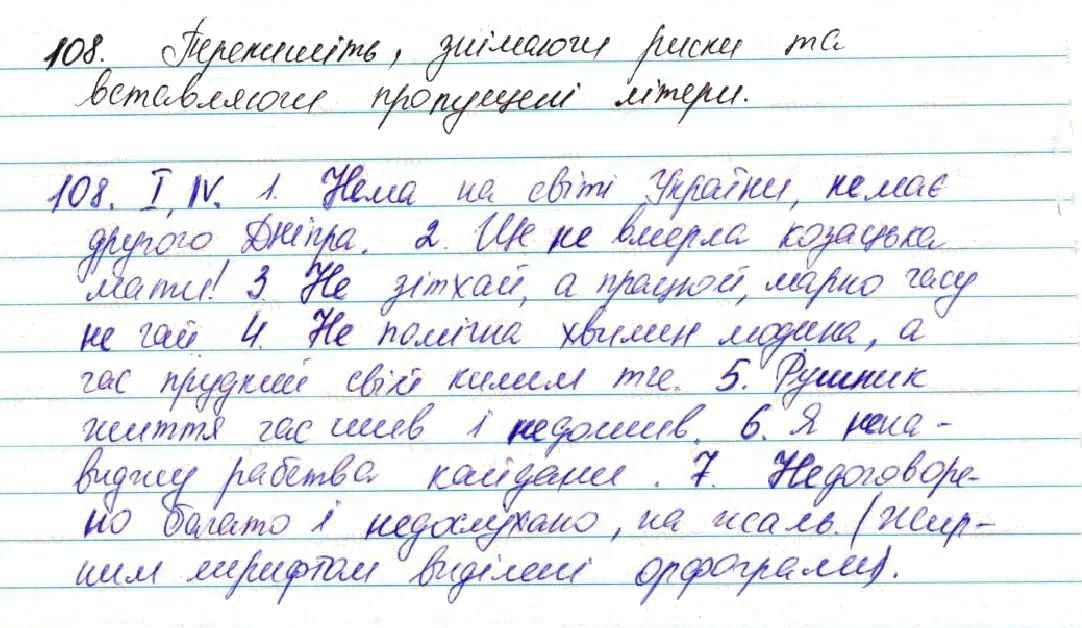 108. Перепишіть, знімаючи риски та
вставляючи пропущені літери.
108. I, IV. 1. Нема на світі України, немає
другого Дніпра. 2. Ще не вмерла козацька
мати! 3. Не зітхай, а працюй, марно часу
не гай 4. Не помічна хвилин людина, а
час прудкий свій килим тче. 5. Рушник
життя час шив і недошив. 6. Я нена-
виджу рабства кайдани. 7. Недоговоре-
но багато і недослухано, на жаль. (Жир-
ним шрифтом виділені орфограми).